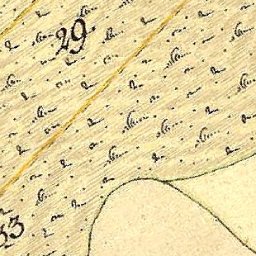 29
33